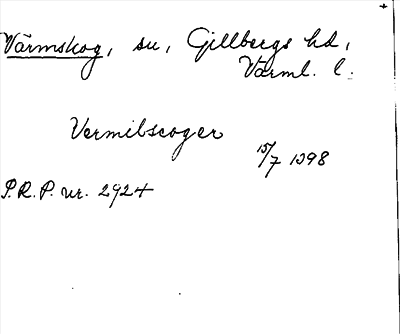 Värmskog, sn, Gillbergs hd,
Värml. l.
Vermilscoger
15/7 1398
P.R.P. nr. 2924